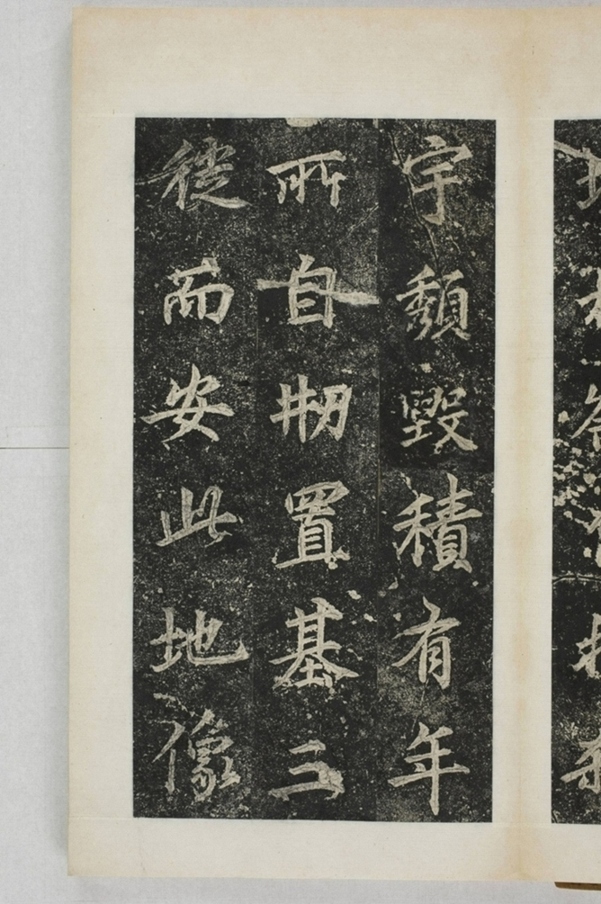 宇頽毀積有年
所自刱置基三
徙而安此地像